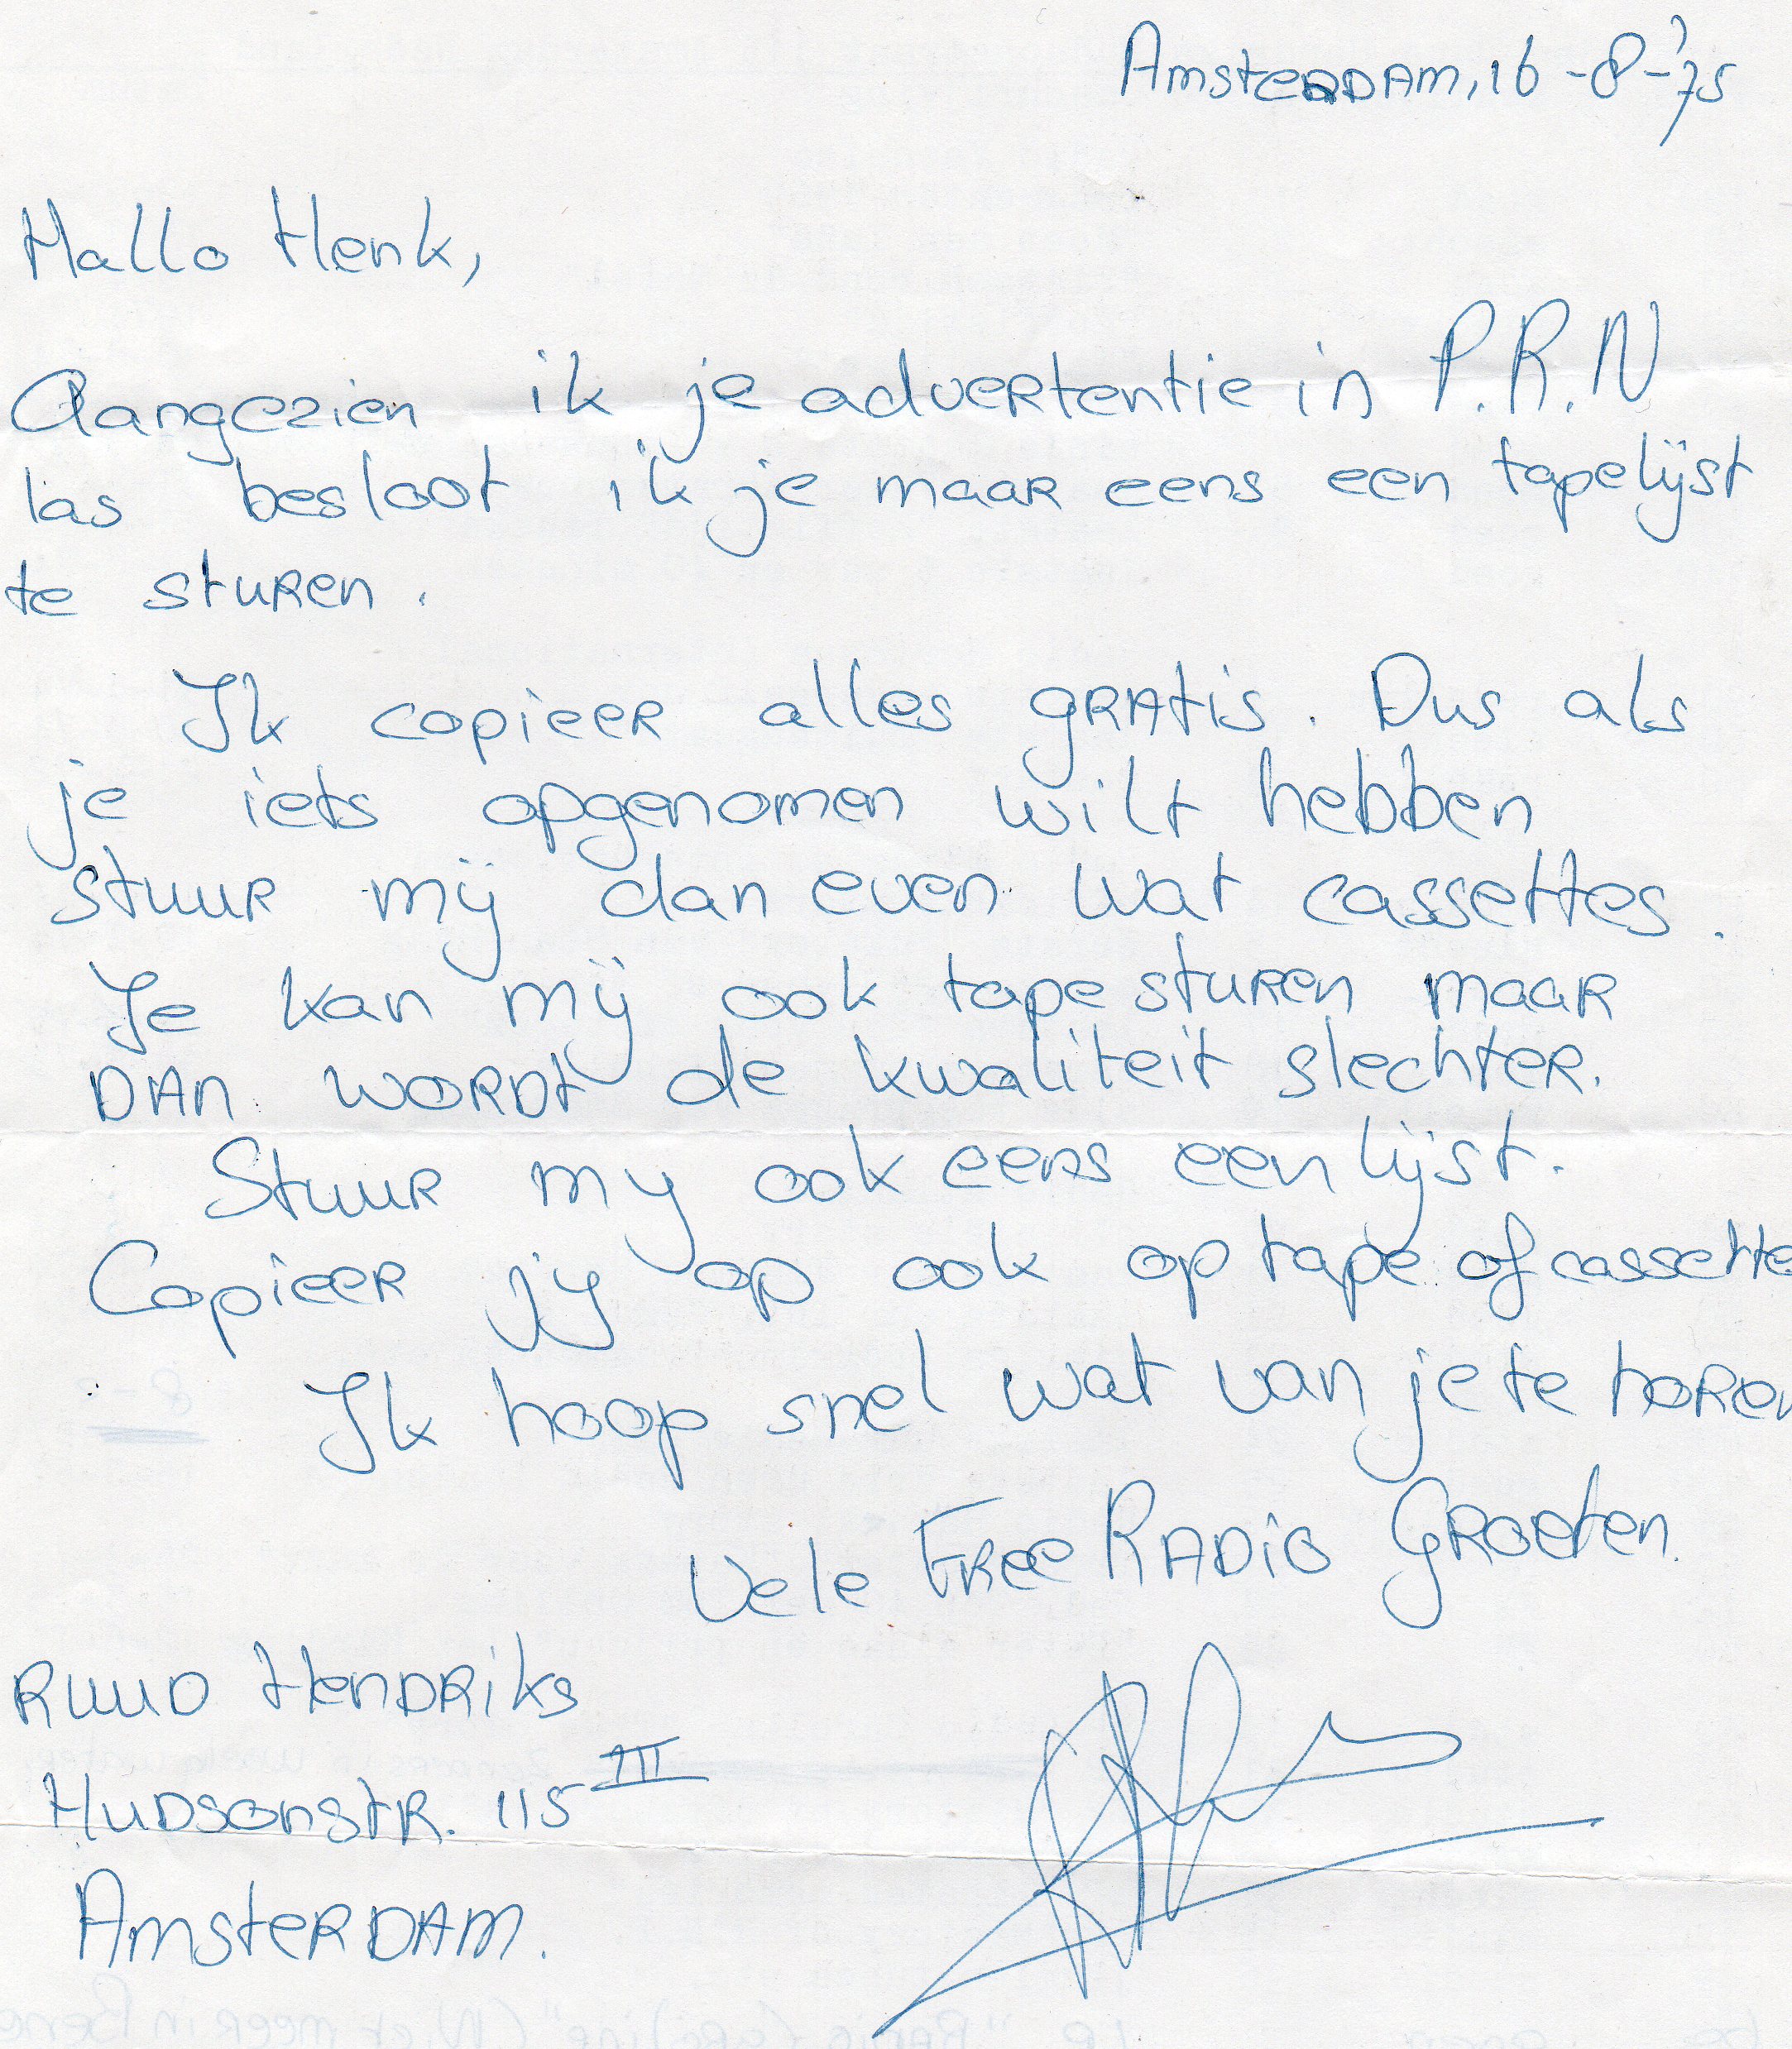 Amsterdam, 16-8-'75
Hallo Henk,
Aangezien ik je advertentie in P.R.N
las besloot ik je maar eens een tapelijst
te sturen.
Ik copieer alles gratis. Dus als
je iets opgenomen wilt hebben
stuur mij dan even wat cassettes.
Je kan mij ook tape sturen maar
dan wordt de kwaliteit slechter.
Stuur my ook eens een lijst.
Copieer jy op ook op tape of cassette
Ik hoop snel wat van je te horen
Vele Free Radio Groeten.
Ruud Hendriks
Hudsonstr. 115 III
Amsterdam.